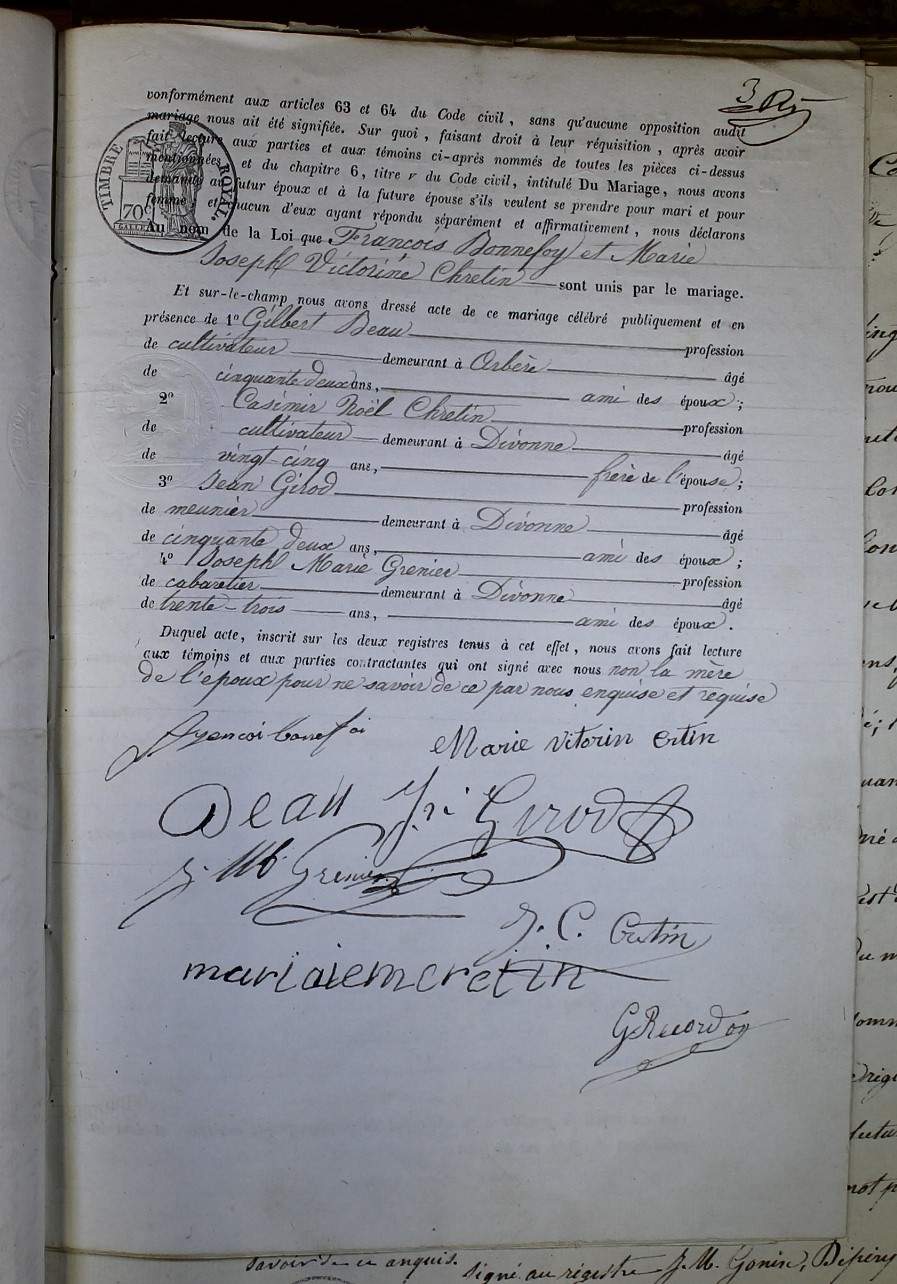 3
conformément aux articles 63 et 64 du Code civil, sans qu'aucune opposition audit
mariage nous ait été signifiée. Sur quoi, faisant droit à leur réquisition, après avoir
fait lecture aux parties et aux témoins ci-après nommés de toutes les pièces ci-dessus
mentionnées, et du chapitre 6, titre v du Code civil, intitulé Du Mariage, nous avons
demandé au futur époux et à la future épouse s'ils veulent se prendre pour mari et pour
femme, et chacun d'eux ayant répondu séparément et affirmativement, nous déclarons
Au nom de la Loi que François Bonnefoy et Marie
Joseph Victorine Chretin sont unis par le mariage.
TIMBRE ROYAL
70 c
Et sur-le-champ nous avons dressé acte de ce mariage célébré publiquement et en
présence de 1º Gilbert Beau profession
de cultivateur demeurant à Arbère âgé
de cinquante deux ans, ami des époux ;
2º Casimir Noël Chretin profession
de cultivateur demeurant à Divonne âgé
de vingt-cinq ans, frère de l'épouse ;
3º Jean Girod profession
de meunier demeurant à Divonne âgé
de cinquante deux ans, ami des époux ;
4º Joseph Marie Grenier profession
de cabaretier demeurant à Divonne âgé
de trente-trois ans, ami des époux.
Duquel acte, inscrit sur les deux registres tenus à cet effet, nous avons fait lecture
aux témoins et aux parties contractantes qui ont signé avec nous non la mère
de l'epoux pour ne savoir de ce par nous enquise et requise
Marie vitorin crtin
Beau Girod
J. M. Grenier
J. C. Cretin
mariaiemcretin
G Recordon
savoir de ce anquis.
signé au régistre J. M. Gonin, Dépéry